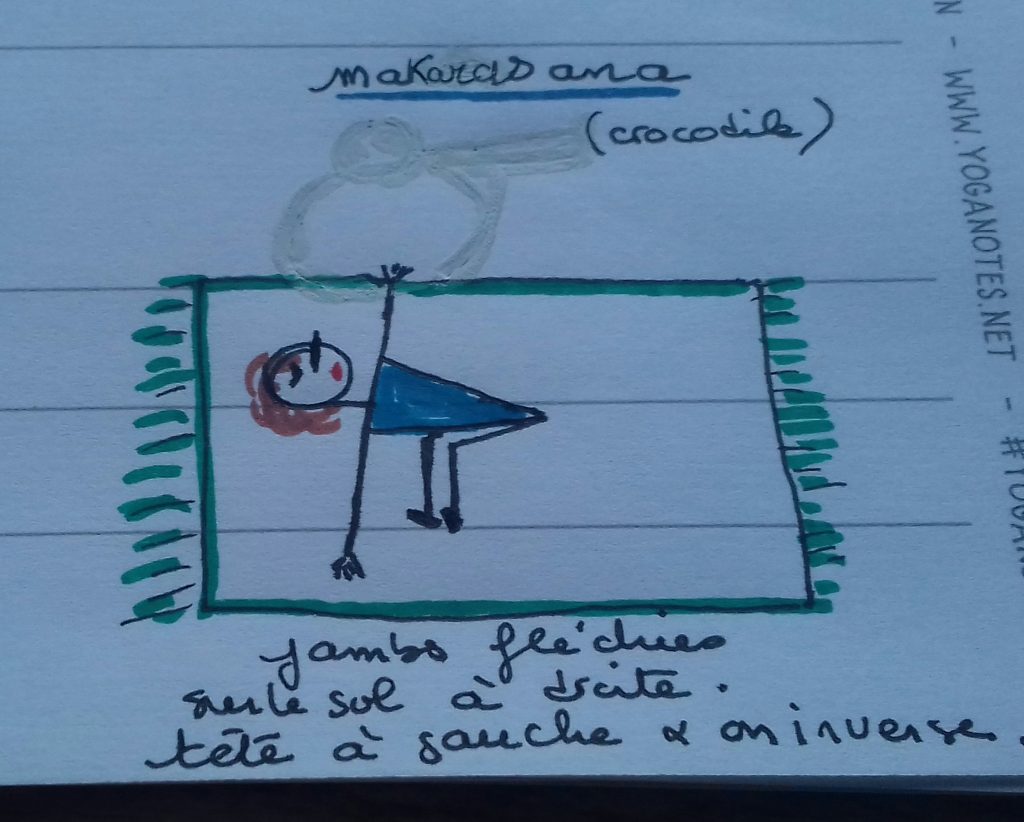 makarasana
(crocodile)
jambes fléchies
sur le sol à droite.
tête à gauche & on inverse.
N - WWW.YOGANOTES.NET - #YOGAN